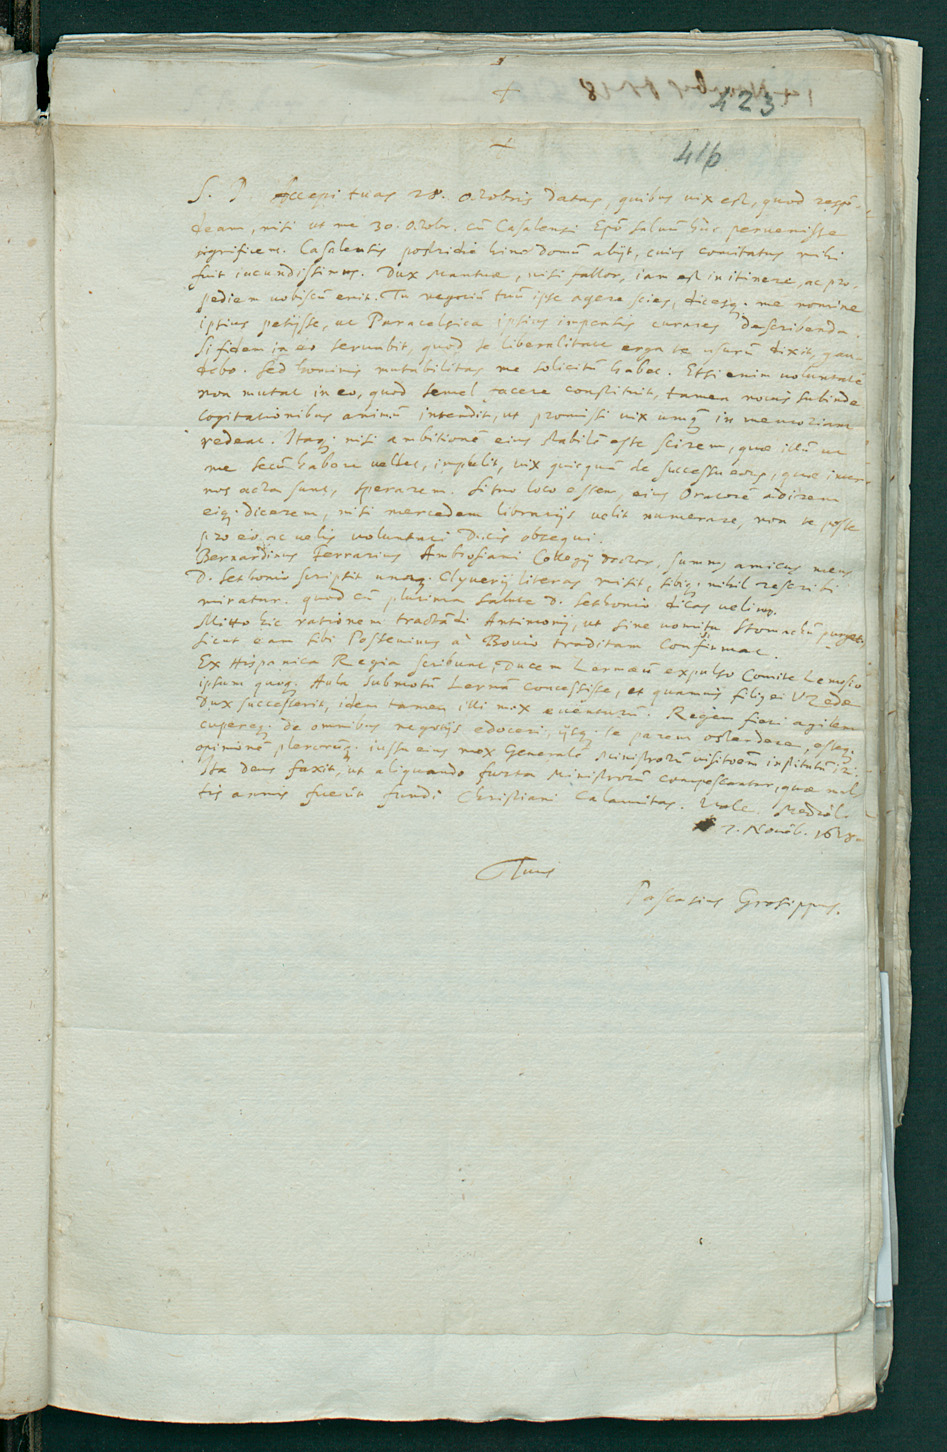 423
+
416
+
S. P. Accepi tuas 28. Octobris datas, quibus vix est, quod respõ-
deam, nisi ut me 30. Octobr. cũ Casalensi Epõ salvũ huc pervenisse
significem. Casalensis postridie hinc domũ abijt, cuius comitatus mihi
fuit iucundissimus. Dux Mantuæ, nisi fallor, iam est in itinere, ac pro-
pediem vobiscũ erit. Tu negociũ tuũ ipse agere scies, dicesq. me nomine
ipsius petijsse, ut Paracelsica ipsius impensis curares describenda.
Si fidem in eo servabit, quod se liberalitate erga te usurũ dixit, gau-
debo. Sed hominis mutabilitas me solicitũ habet. Etsi enim voluntatẽ
non mutat in eo, quod semel facere constituit, tamen novis subinde
cogitationibus animũ intendit, ut promissi vix umq̃ in memoriam
redeat. Itaq. nisi ambitionẽ eius stabilẽ esse scirem, quæ illũ ut
me secũ habere vellet, impulit, vix quicquã de successu eorũ, quæ inter
nos acta sunt, sperarem. Si tuo loco essem, eius Oratorẽ adirem
eiq. dicerem, nisi mercedem librarijs velit numerare, non te posse
pro eo ac velis voluntati Ducis obsequi.
Bernardinus Ferrarius Ambrosiani Collegij doctor, summus amicus meus
D. Sethonio scripsit unaq. Cluverij literas misit, sibiq. nihil rescribi
miratur. quod cũ plurima salute D. Sethonio dicas velim.
Mitto hic rationem tractãdi Antimonij, ut sine vomitu stomachũ purget,
sicut eam sibi Postenius à Bovio traditam confirmat.
Ex Hispanica Regia scribunt, Ducem Lermæũ expulso Comite Lemosio
ipsum quoq. Aula submotũ Lermã concessisse, et quamvis filius ei Uzedæ
Dux successerit, idem tamen illi mox eventurũ. Regem fieri agilem
cupereq. de omnibus negotijs edoceri, ijsq. se parem ostendere, esseq.
opinionẽ plerorũq. iussu eius mox Generalẽ Ministrorũ visitatõem institutũ iri.
Ita deus faxit, ut aliquando furta Ministrorũ compescantur, quæ mul-
tis annis fuerũt fundi Christiani calamitas. Vale. Mediol.
7. Novẽb. 1618.
Tuus
Pascasius Grosippus.